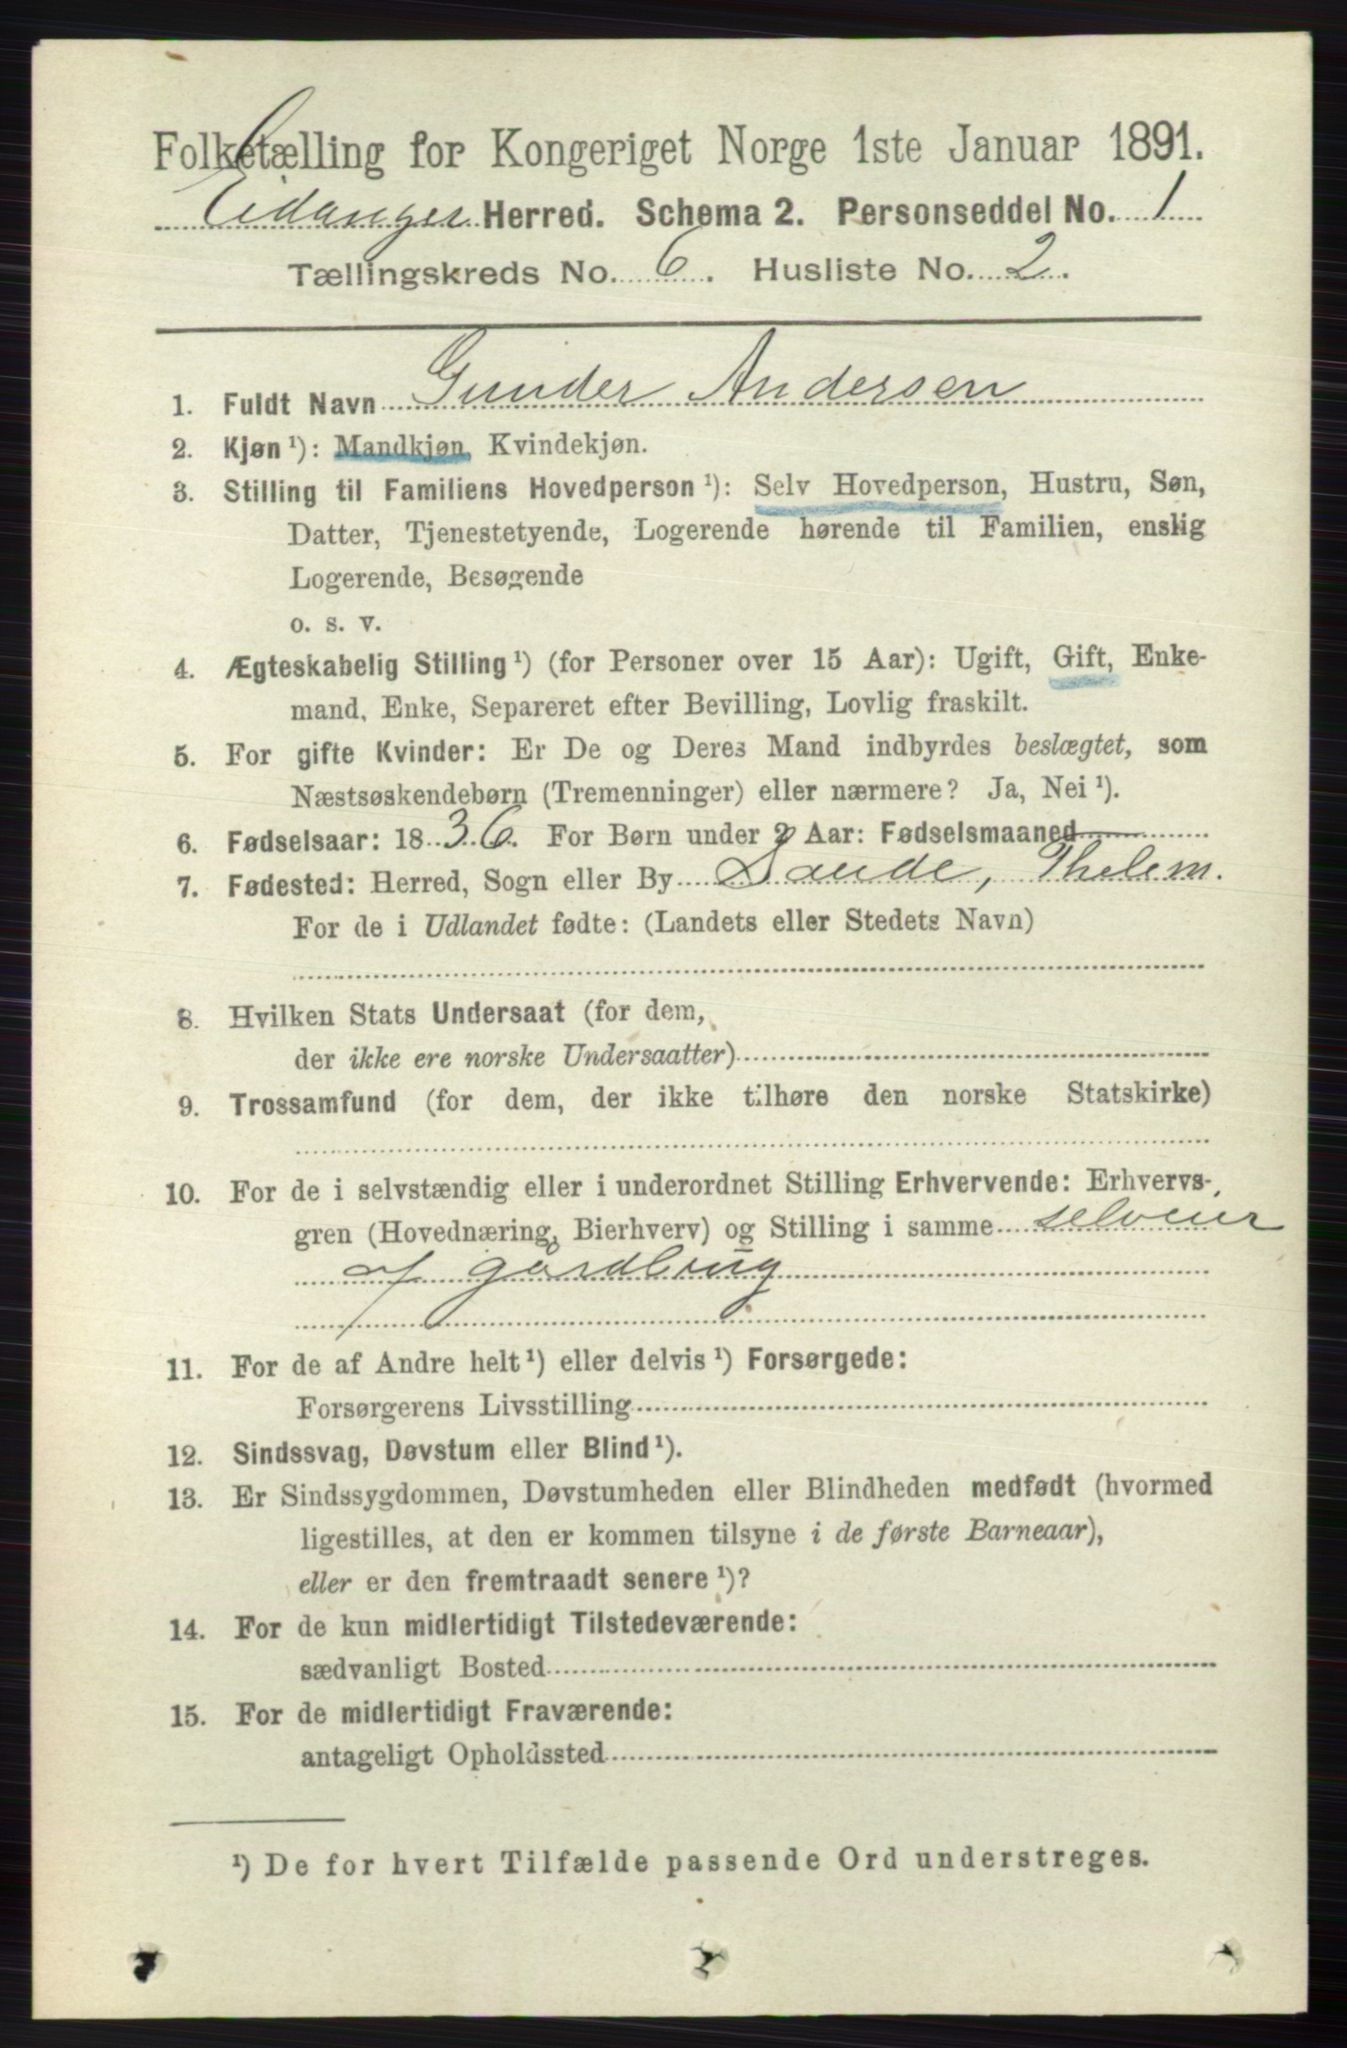 Folketælling for Kongeriget Norge 1ste Januar 1891.
Eidanger Herred. Schema 2. Personseddel No. 1
Tællingskreds No. 6. Husliste No. 2.
1. Fuldt Navn Gunder Andersen
2. Kjøn ¹): Mandkjøn, Kvindekjøn.
3. Stilling til Familiens Hovedperson ¹): Selv Hovedperson, Hustru, Søn,
Datter, Tjenestetyende, Logerende hørende til Familien, enslig
Logerende, Besøgende
o. s. v.
4. Ægteskabelig Stilling ¹) (for Personer over 15 Aar): Ugift, Gift, Enke-
mand, Enke, Separeret efter Bevilling, Lovlig fraskilt.
5. For gifte Kvinder: Er De og Deres Mand indbyrdes beslægtet, som
Næstsøskendebørn (Tremenninger) eller nærmere? Ja, Nei ¹).
6. Fødselsaar: 1836. For Børn under 2 Aar: Fødselsmaaned
7. Fødested: Herred, Sogn eller By Saude, Thelem.
For de i Udlandet fødte: (Landets eller Stedets Navn)
8. Hvilken Stats Undersaat (for dem,
der ikke ere norske Undersaatter)
9. Trossamfund (for dem, der ikke tilhøre den norske Statskirke)
10. For de i selvstændig eller i underordnet Stilling Erhvervende: Erhvervs-
gren (Hovednæring, Bierhverv) og Stilling i samme selveier
af gårdbrug
11. For de af Andre helt ¹) eller delvis ¹) Forsørgede:
Forsørgerens Livsstilling
12. Sindssvag, Døvstum eller Blind ¹).
13. Er Sindssygdommen, Døvstumheden eller Blindheden medfødt (hvormed
ligestilles, at den er kommen tilsyne i de første Barneaar),
eller er den fremtraadt senere ¹)?
14. For de kun midlertidigt Tilstedeværende:
sædvanligt Bosted
15. For de midlertidigt Fraværende:
antageligt Opholdssted
¹) De for hvert Tilfælde passende Ord understreges.